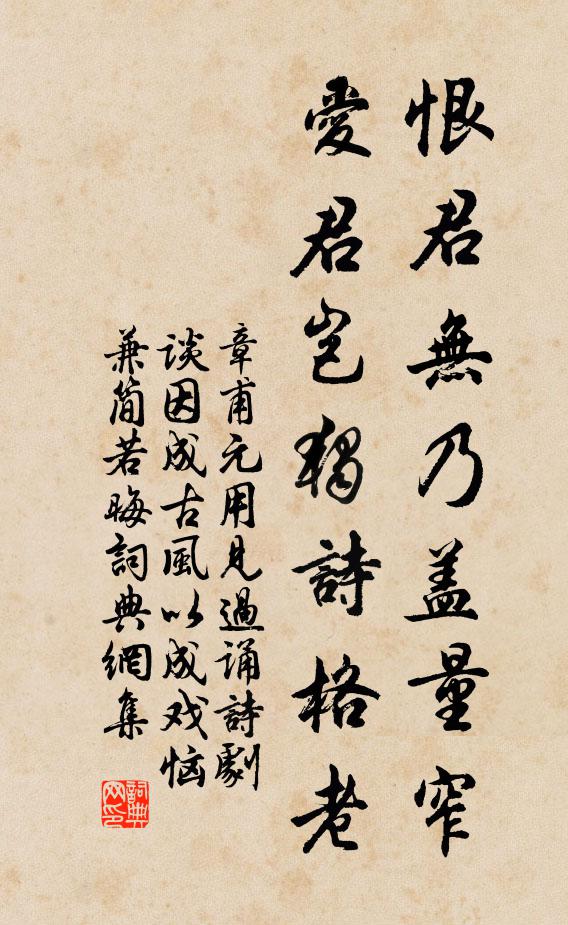 恨君無乃盖量窄
愛君豈獨詩格老
章甫元用見過诵詩劇
談因成古風以成戏恼
兼简若晦詞典網集
詞典网印